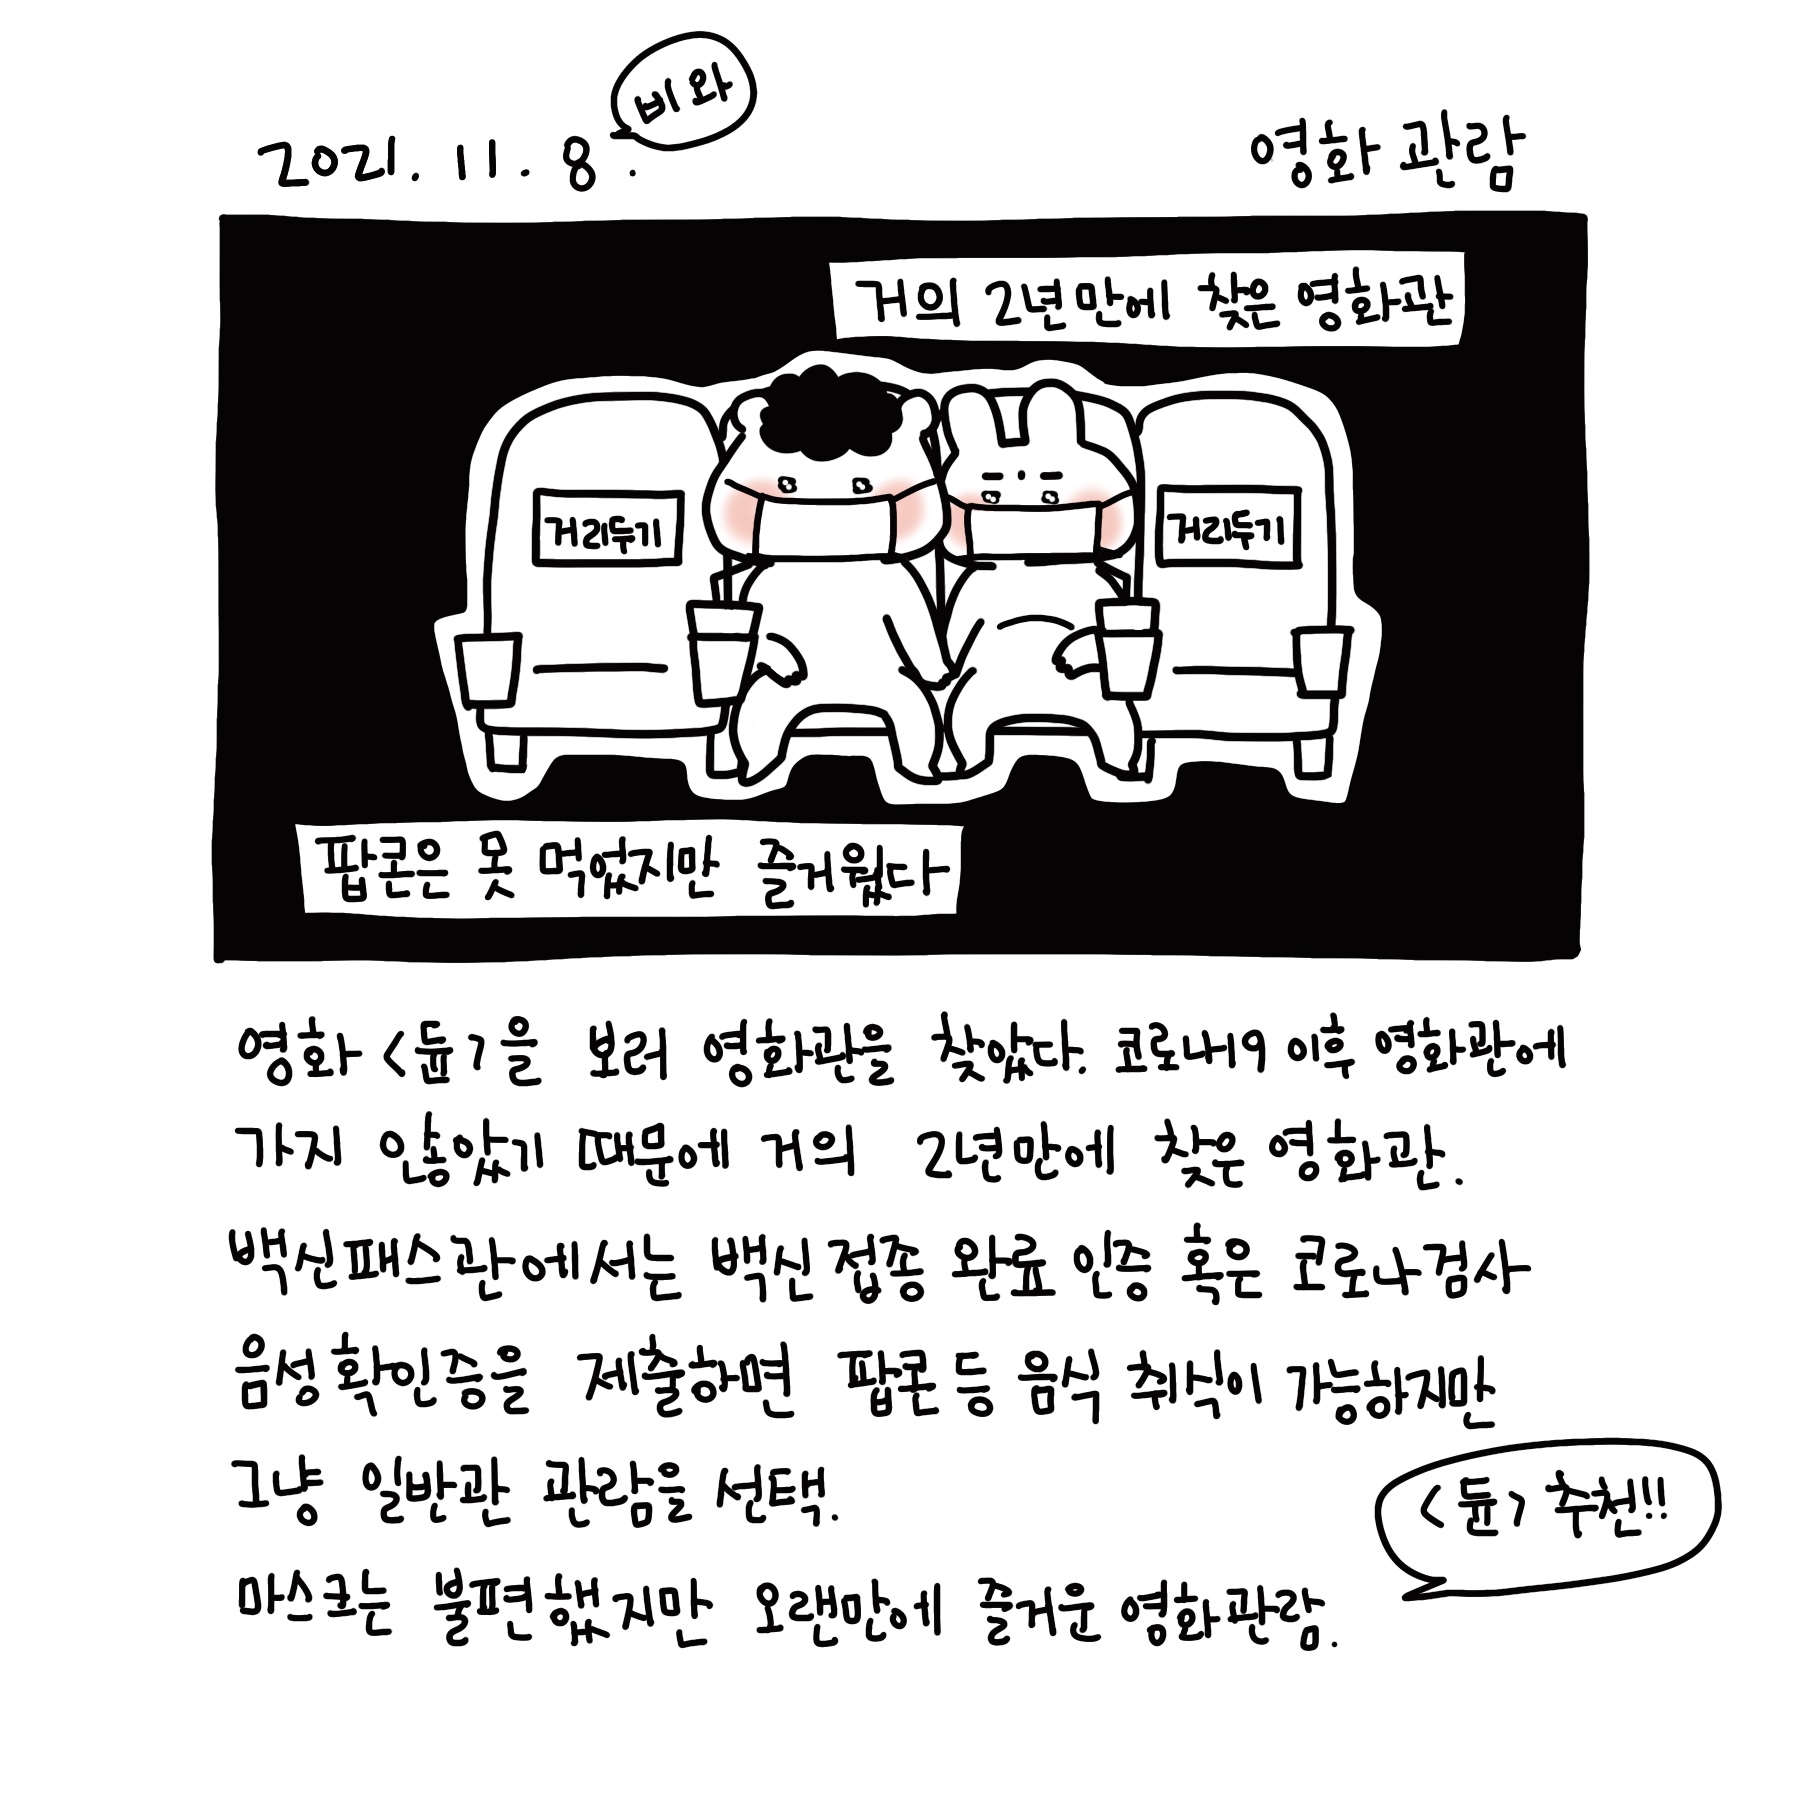 비와
2021. 11. 8.
영화 관람
거의 2년만에 찾은 영화관
거리두기
거리두기
팝콘은 못 먹었지만 즐거웠다
영화 <듄>을 보러 영화관을 찾았다. 코로나19 이후 영화관에
가지 않았기 때문에 거의 2년만에 찾은 영화관.
백신패스관에서는 백신접종 완료 인증 혹은 코로나검사
음성확인증을 제출하면 팝콘 등 음식 취식이 가능하지만
그냥 일반관 관람을 선택.
<듄> 추천!!
마스크는 불편했지만 오랜만에 즐거운 영화관람.